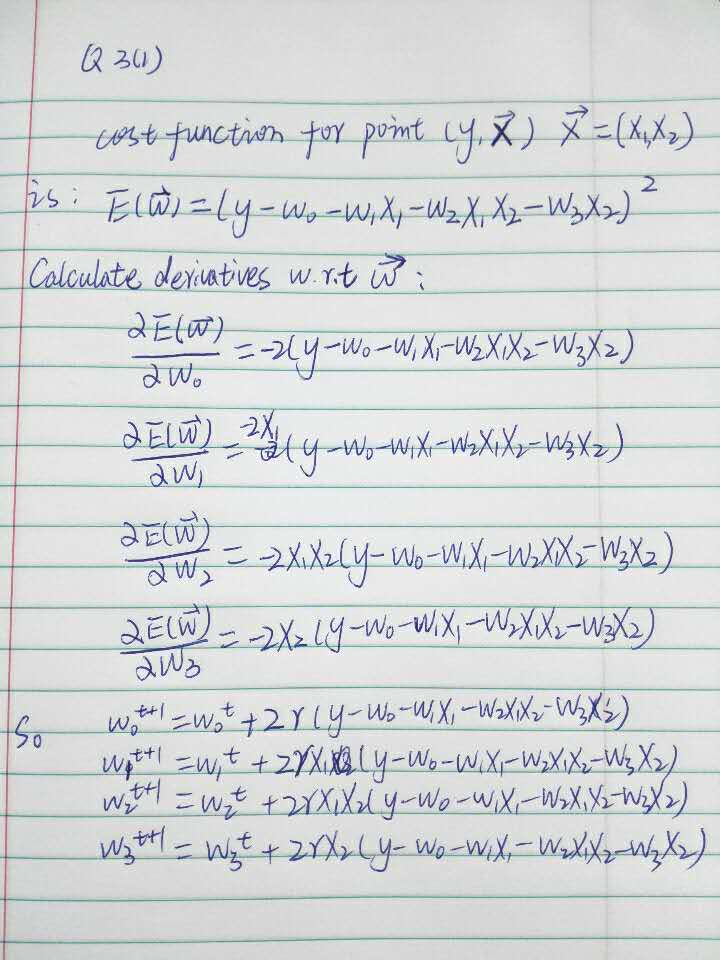 Q 3(1)
cost function for point (y, X⃗) X⃗=(X₁,X₂)
is: E(w⃗)=(y-w₀-w₁X₁-w₂X₁X₂-w₃X₂)²
Calculate derivatives w.r.t w⃗:
∂E(w⃗)/∂w₀ = -2(y-w₀-w₁X₁-w₂X₁X₂-w₃X₂)
∂E(w⃗)/∂w₁ = -2X₁(y-w₀-w₁X₁-w₂X₁X₂-w₃X₂)
∂E(w⃗)/∂w₂ = -2X₁X₂(y-w₀-w₁X₁-w₂X₁X₂-w₃X₂)
∂E(w⃗)/∂w₃ = -2X₂(y-w₀-w₁X₁-w₂X₁X₂-w₃X₂)
So w₀ᵗ⁺¹=w₀ᵗ+2r(y-w₀-w₁X₁-w₂X₁X₂-w₃X₂)
w₁ᵗ⁺¹=w₁ᵗ+2rX₁(y-w₀-w₁X₁-w₂X₁X₂-w₃X₂)
w₂ᵗ⁺¹=w₂ᵗ+2rX₁X₂(y-w₀-w₁X₁-w₂X₁X₂-w₃X₂)
w₃ᵗ⁺¹=w₃ᵗ+2rX₂(y-w₀-w₁X₁-w₂X₁X₂-w₃X₂)